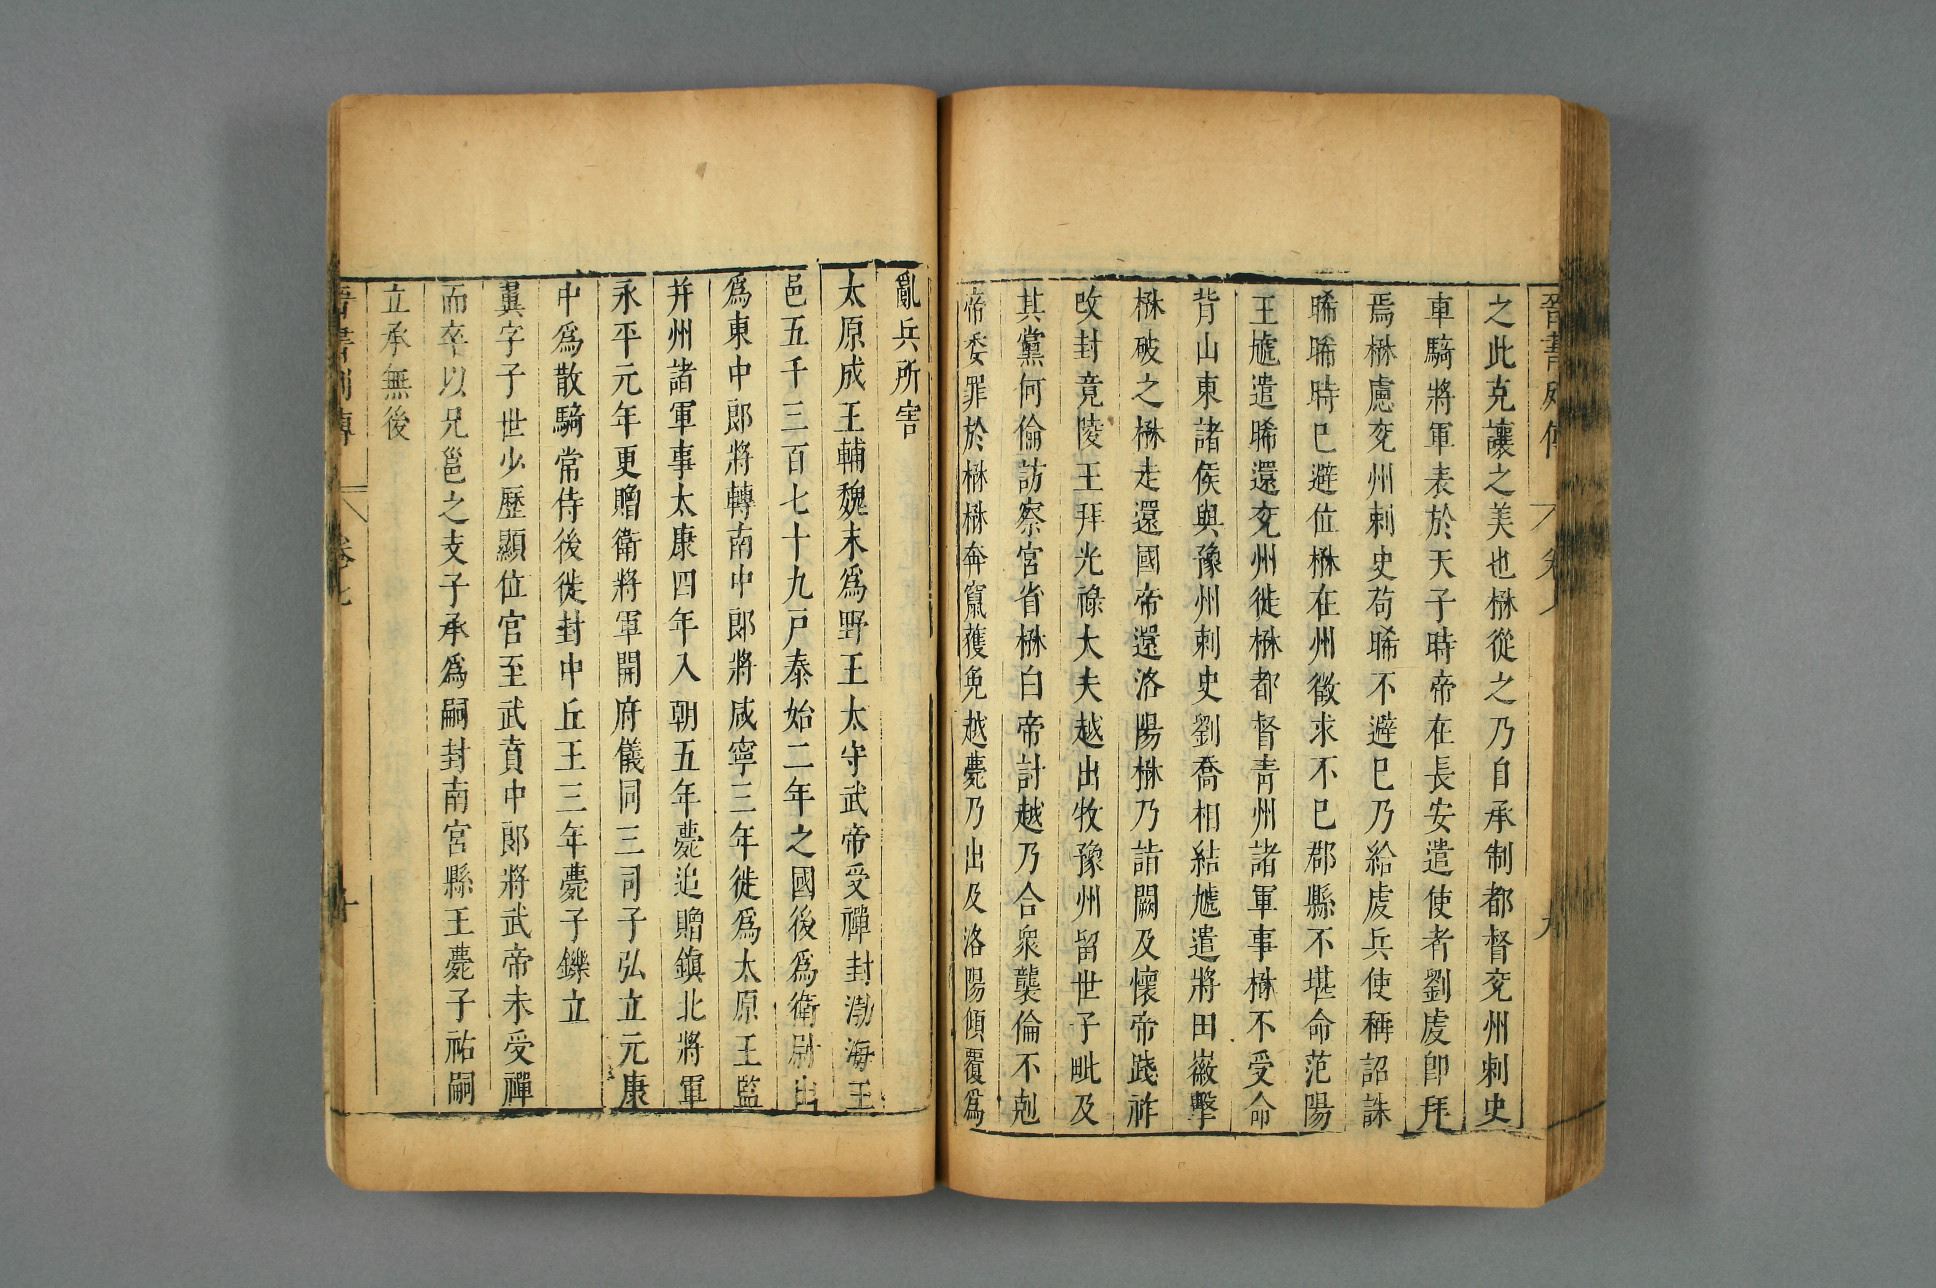 之此克讓之美也楙從之乃自承制都督兗州刺史
車騎將軍表於天子時帝在長安遣使者劉虔卽拜
焉楙慮兗州刺史苟晞不避已乃給虔兵使稱詔誅
晞晞時巳避位楙在州徵求不巳郡縣不堪命范陽
王虓遣晞還兗州徙楙都督青州諸軍事楙不受命
背山東諸侯與豫州刺史劉喬相結虓遣將田徽擊
楙破之楙走還國帝還洛陽楙乃詣闕及懷帝踐祚
改封竟陵王拜光祿大夫越出牧豫州留世子毗及
其黨何倫訪察宮省楙白帝討越乃合衆襲倫不剋
帝委罪於楙楙奔竄獲免越薨乃出及洛陽傾覆爲
亂兵所害
太原成王輔魏末爲野王太守武帝受禪封渤海王
邑五千三百七十九戸泰始二年之國後爲衛尉出
爲東中郎將轉南中郎將咸寧三年徙爲太原王監
并州諸軍事太康四年入朝五年薨追贈鎮北將軍
永平元年更贈衛將軍開府儀同三司子弘立元康
中爲散騎常侍後徙封中丘王三年薨子鑠立
翼字子世少歷顯位官至武賁中郎將武帝未受禪
而卒以兄邕之支子承爲嗣封南宮縣王薨子祐嗣
立承無後
晉書列傳 卷七 十